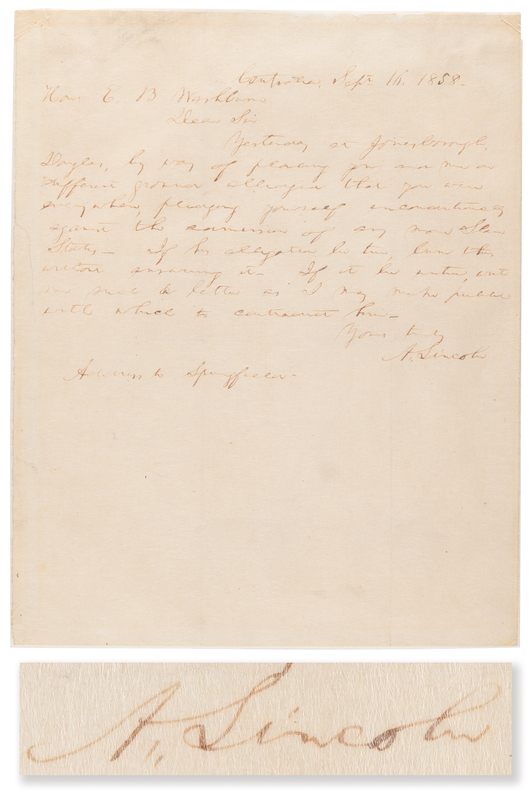 Centralia, Sept. 16. 1858.
Hon. E. B. Washburne
Dear Sir
Yesterday at Jonesborough,
Douglas, by way of placing you and me on
different ground alleged that you were
everywhere, pledging yourself unconditionally
against the admission of any more Slave
States— If his allegation be true, burn this
without answering it— If it be untrue, write
me such a letter as I may make public
with which to contradict him—
Yours truly
A. Lincoln
Address to Springfield—
A. Lincoln